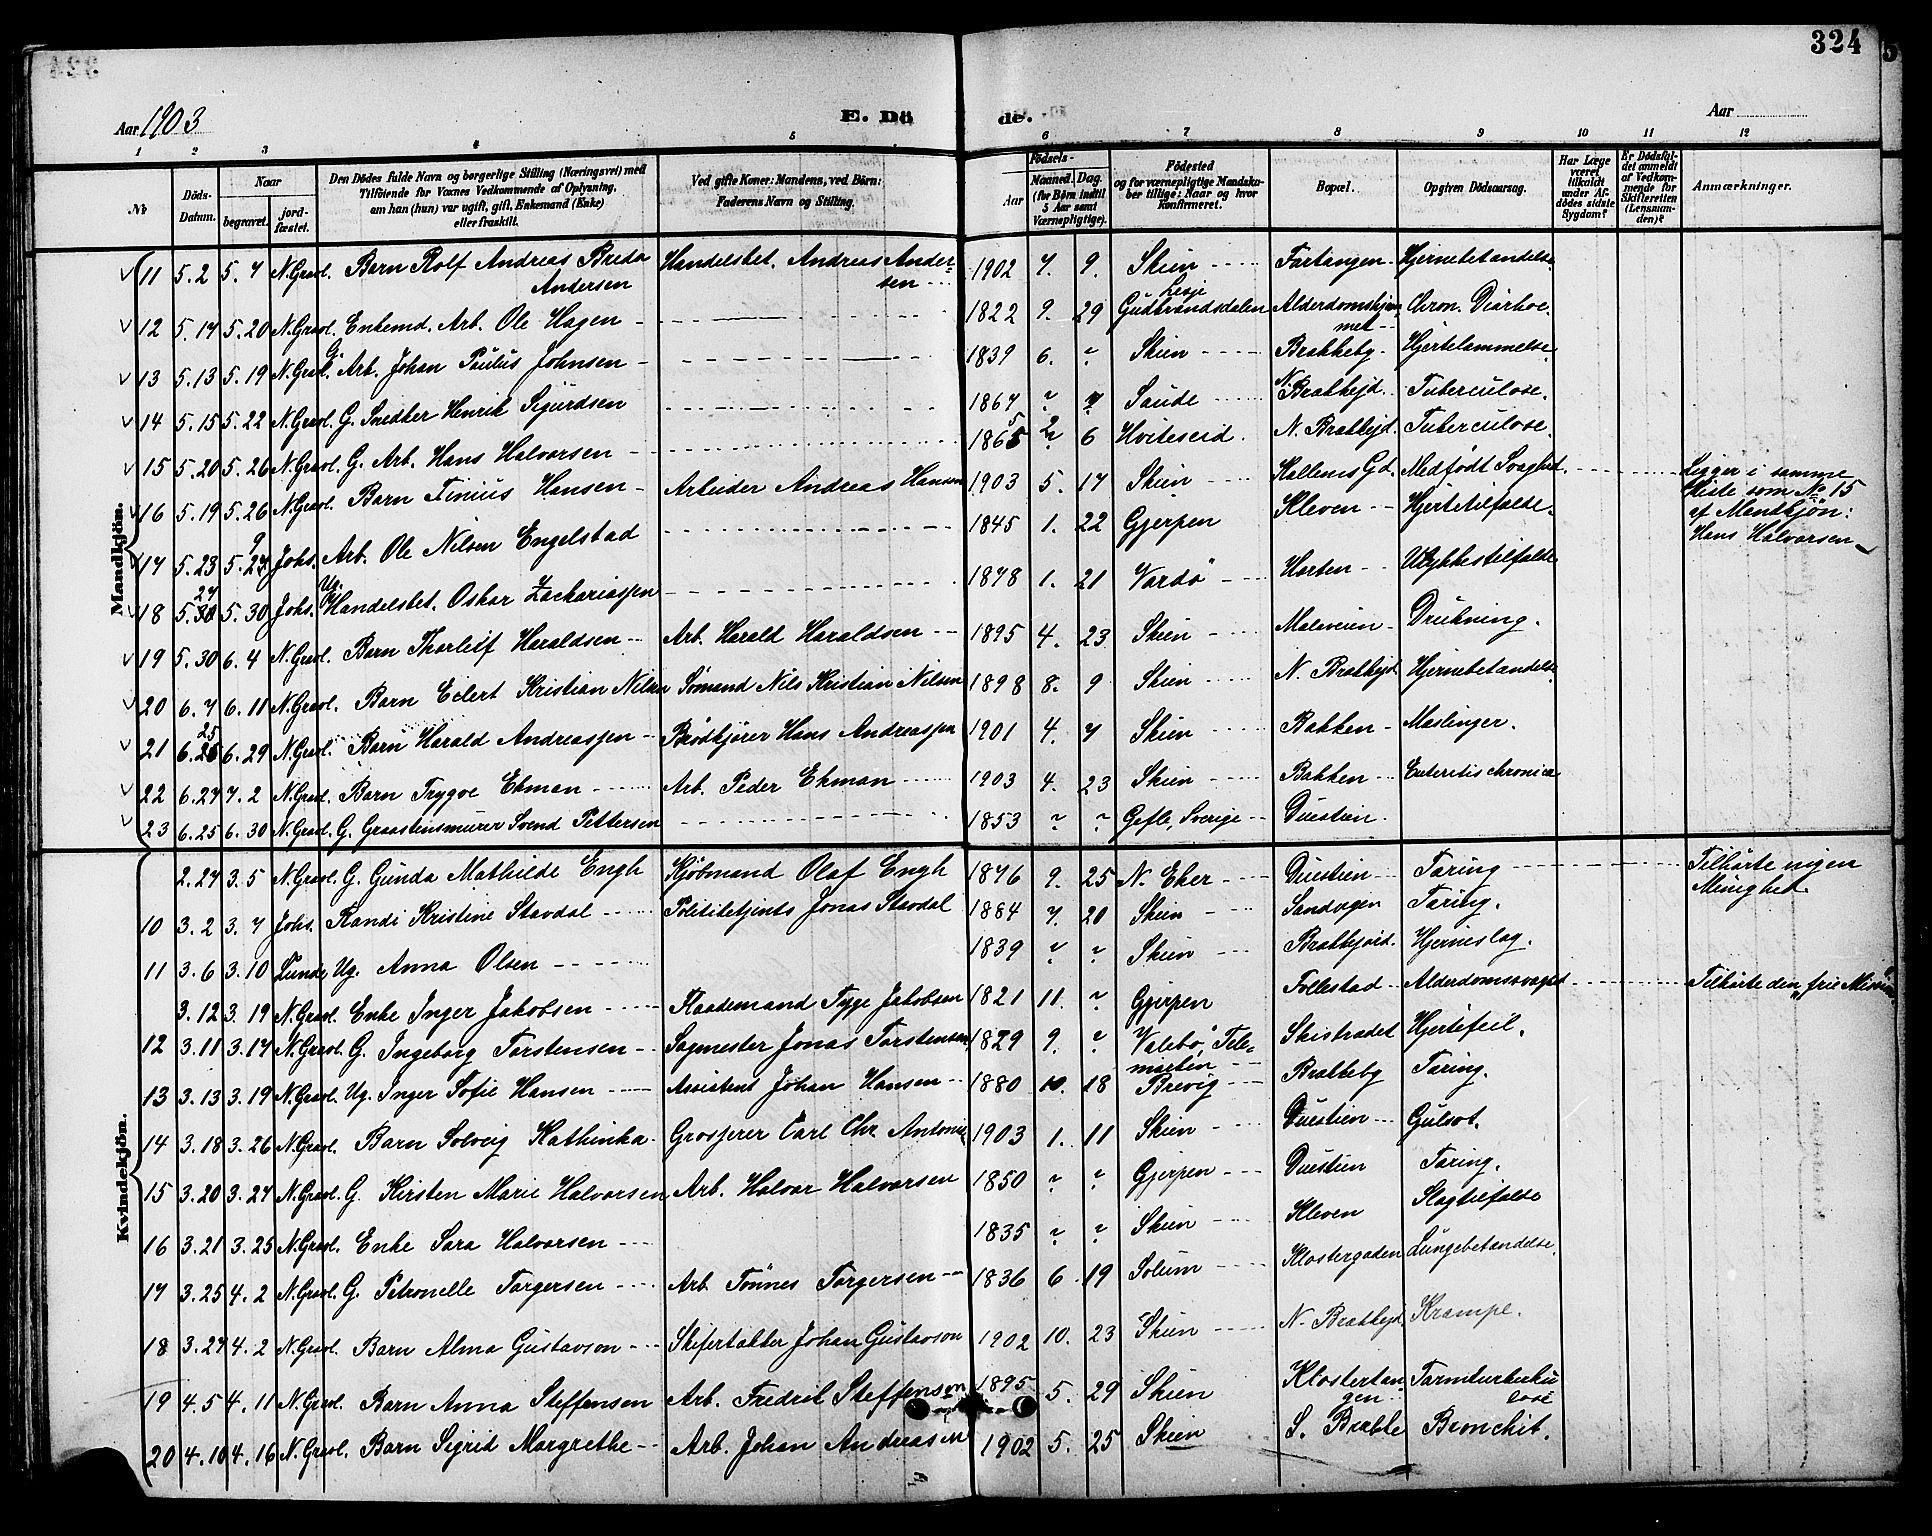 324
Aar 1903
E. Dö
de.
Aar
1 2 3 4 5 6 7 8 9 10 11 12
No
Döds-Datum.
Naar
begravet.
jordfæstet.
Den Dödes fulde Navn og borgerlige Stilling (Næringsvei) med
Tilföiende for Voxnes Vedkommende af Oplysning,
om han (hun) var ugift, gift, Enkemand (Enke)
eller fraskilt.
Ved gifte Koner: Mandens, ved Börn:
Faderens Navn og Stilling.
Födsels-
Aar
Maaned. Dag.
(for Börn indtil
5 Aar samt
Værnepligtige).
Födested
og for værnepligtige Mandskaber tillige: Naar og hvor
konfirmeret.
Bopæl.
Opgiven Dödsaarsag.
Har Læge
været
tilkaldt
under Afdödes sidste
Sygdom?
Er Dödsfaldet anmeldt
af Vedkommende for
Skifteretten
(Lensmanden)?
Anmærkninger.
Mandkjön.
11 5.2 5.7 N.Gravl. Barn Rolf Andreas Breda Andersen Handelsbet. Andreas Andersen 1902 7. 9. Skien Fartangen Hjernebetændelse.
12 5.14 5.20 N.Gravl. Enkemd. Arb. Ole Hagen 1822 9. 29 Lesje Gudbrandsdalen Alderdomshjemmet Chron. Diarhoe.
13 5.13 5.19 N.Gravl. G. Arb. Johan Paulus Johnsen 1839 6. ? Skien Brekkeby Hjertelammelse.
14 5.15 5.22 N.Gravl. G. Snedker Henrik Sigurdsen 1867 ? ? Saude N. Brekkejd. Tuberculose.
15 5.20 5.26 N.Gravl. G. Arb. Hans Halvorsen 1865 2 6 Hviteseid. N. Brekkejd. Tuberculose.
16 5.19 5.26 N.Gravl. Barn Tinius Hansen Arbeider Andreas Hansen 1903 5. 17 Skien Kallems Gd. Medfödt Svaghed. Ligger i samme Kiste som No 15 af Mandkjön: Hans Halvorsen
17 5.23 5.29 Johs. Arb. Ole Nilsen Engelstad 1845 1. 22 Gjerpen Kleven Hjertetilfælde.
18 5.27 5.30 Johs. Ug. Handelsbet. Oskar Zachariassen 1878 1. 21 Vardö Horten Ulykkestilfælde
19 5.30 6.4 N.Gravl. Barn Thorleif Haraldsen Arb. Harald Haraldsen 1895 4. 23 Skien Maleveien Drukning.
20 6.7 6.11 N.Gravl. Barn Eilert Kristian Nilsen Sömand Nils Kristian Nilsen 1898 8. 9 Skien N. Brekkejd. Hjernebetændelse
21 6.25 6.29 N.Gravl. Barn Harald Andreassen Brödkjörer Hans Andreassen 1901 4. 7 Skien Bakken Meslinger.
22 6.27 7.2 N.Gravl. Barn Trygve Ekman Arb. Peder Ekman 1903 4. 23 Skien Bakken Enteritis chronica
23 6.25 6.30 N.Gravl. G. Graastensmurer Svend Pettersen 1853 ? ? Gefle, Sverige Duestien.
Kvindekjön.
2.27 3.5 N.Gravl. G. Gunda Mathilde Engh Kjöbmand Olaf Engh 1876 9. 25 N. Eker Duestien Tæring Tilhörte ingen Menighed
10 3.2 3.7 Johs. Randi Kristine Stavdal Polititetjents Jonas Stavdal 1884 7. 20 Skien Sandvigen Tæring.
11 3.6 3.10 Lunde Ug. Anna Olsen 1839 ? ? Skien Brekkejord. Hjerneslag.
3.12 3.19 N.Gravl. Enke Inger Jakobsen Raademand Tyge Jakobsen 1821 11. ? Gjerpen Follestad Alderdomssvaghed Tilhörte den „frie Mission“
12 3.11 3.17 N.Gravl. G. Ingeborg Torstensen Sagmester Jonas Torstensen 1829 9. ? Valebö Telemarken Skistrædet Hjertefeil.
13 3.13 3.19 N.Gravl. Ug. Inger Sofie Hansen Assistent Johan Hansen 1880 10. 18 Brevig Brekkeby Tæring.
14 3.18 3.26 N.Gravl. Barn Solveig Kathinka Grosserer Carl Chr. Antonie 1903 1. 11 Skien Duestien Gulsot.
15 3.20 3.27 N.Gravl. G. Kirsten Marie Halvorsen Arb. Halvor Halvorsen 1850 ? ? Gjerpen Duestien Tæring.
16 3.21 3.25 N.Gravl. Enke Sara Halvorsen 1835 ? ? Skien Kleven Slagtilfælde
17 3.25 4.2 N.Gravl. G. Petronelle Torgersen Arb. Tönnes Torgersen 1836 6 19 Solum Klostergaden Lungebetændelse.
18 3.27 4.2 N.Gravl. Barn Alma Gustavson Skifertækker Johan Gustavson 1902 10. 23 Skien N. Brekkejd. Krampe.
19 4.5 4.11 N.Gravl. Barn Anna Steffensen Arb. Fredrik Steffensen 1895 5. 29 Skien Klostertangen Tarmtuberkulose
20 4.10 4.16 N.Gravl. Barn Sigrid Margrethe Arb. Johan Andreasen 1902 5. 25 Skien S. Brekke Bronchit.